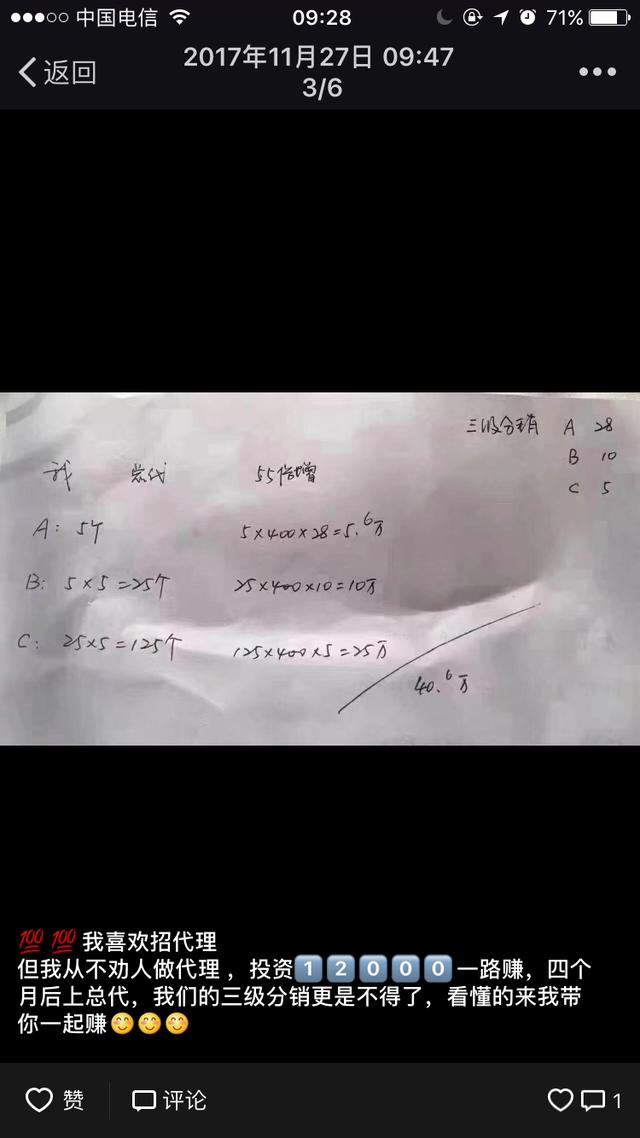 中国电信 09:28 71%
返回 2017年11月27日 09:47
3/6
三级分销 A 28
B 10
C 5
我 总代 55倍增
A: 5个 5×400×28=5.6万
B: 5×5=25个 25×400×10=10万
C: 25×5=125个 125×400×5=25万
40.6万
💯 💯 我喜欢招代理
但我从不劝人做代理，投资1️⃣2️⃣0️⃣0️⃣0️⃣一路赚，四个
月后上总代，我们的三级分销更是不得了，看懂的来我带
你一起赚😊😊😊
赞 评论 1